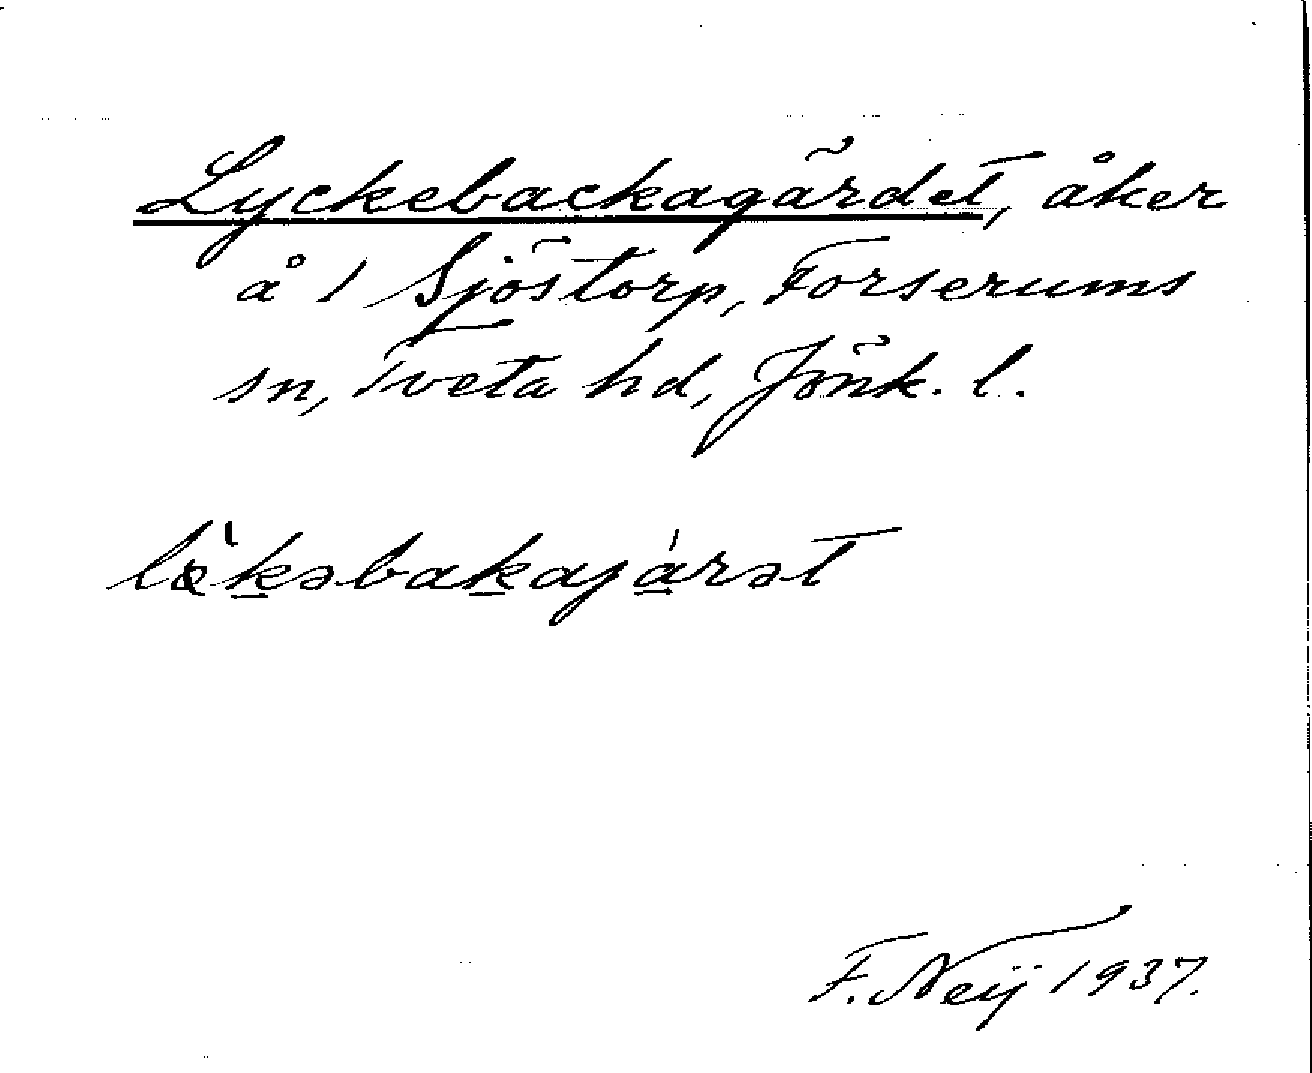 Lyckebackagärdet, åker
å 1 Sjöstorp, Forserums
sn, Tveta hd, Jönk. l.
lö̀k̲əbak̲ajá̲rət
F. Neij 1937.